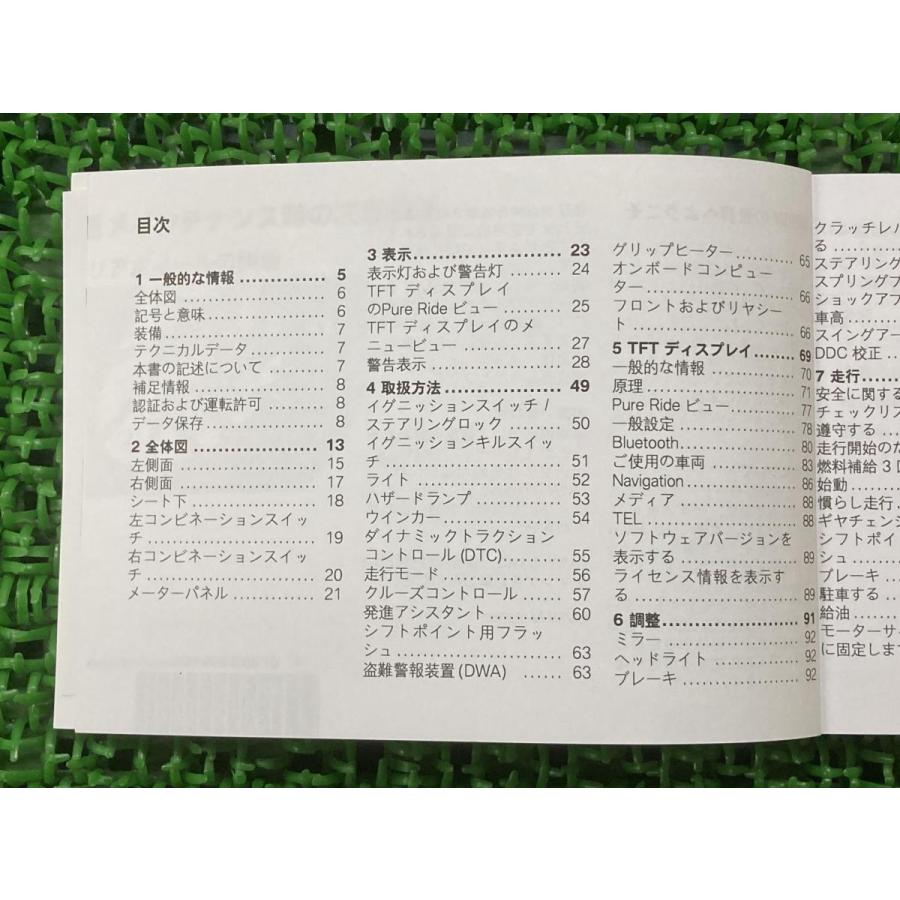 目次
1 一般的な情報 .............. 5
全体図 ........................ 6
記号と意味 .................... 6
装備 ........................... 7
テクニカルデータ ............ 7
本書の記述について ......... 7
補足情報 ...................... 8
認証および運転許可 ......... 8
データ保存 .................... 8
2 全体図 .................... 13
左側面 ........................ 15
右側面 ........................ 17
シート下 ...................... 18
左コンビネーションスイッ
チ .............................. 19
右コンビネーションスイッ
チ .............................. 20
メーターパネル .............. 21
3 表示 ........................ 23
表示灯および警告灯 ......... 24
TFT ディスプレイ
のPure Ride ビュー ......... 25
TFT ディスプレイのメ
ニュービュー ................. 27
警告表示 ...................... 28
4 取扱方法 .................. 49
イグニッションスイッチ /
ステアリングロック ......... 50
イグニッションキルスイッ
チ .............................. 51
ライト ......................... 52
ハザードランプ .............. 53
ウインカー .................... 54
ダイナミックトラクション
コントロール (DTC) ......... 55
走行モード .................... 56
クルーズコントロール ...... 57
発進アシスタント ............ 60
シフトポイント用フラッ
シュ ........................... 63
盗難警報装置 (DWA) ...... 63
グリップヒーター ............ 65
オンボードコンピュー
ター ........................... 66
フロントおよびリヤシー
ト .............................. 66
5 TFT ディスプレイ ....... 69
一般的な情報 ................. 70
原理 ........................... 71
Pure Ride ビュー ............ 77
一般設定 ...................... 78
Bluetooth ..................... 80
ご使用の車両 ................. 83
Navigation .................... 86
メディア ...................... 88
TEL ............................ 88
ソフトウェアバージョンを
表示する ...................... 89
ライセンス情報を表示す
る .............................. 89
6 調整 ........................ 91
ミラー ......................... 92
ヘッドライト ................. 92
ブレーキ ...................... 92
クラッチレバ
る ..........
ステアリング
スプリングプ
ショックアブ
車高 ........
スイングアー
DDC 校正 ...
7 走行 ......
安全に関する
チェックリス
遵守する ...
走行開始のた
燃料補給 3 回
始動 ........
慣らし走行 .
ギヤチェンジ
シフトポイン
シュ ........
ブレーキ ...
駐車する ...
給油 ........
モーターサイ
に固定しま